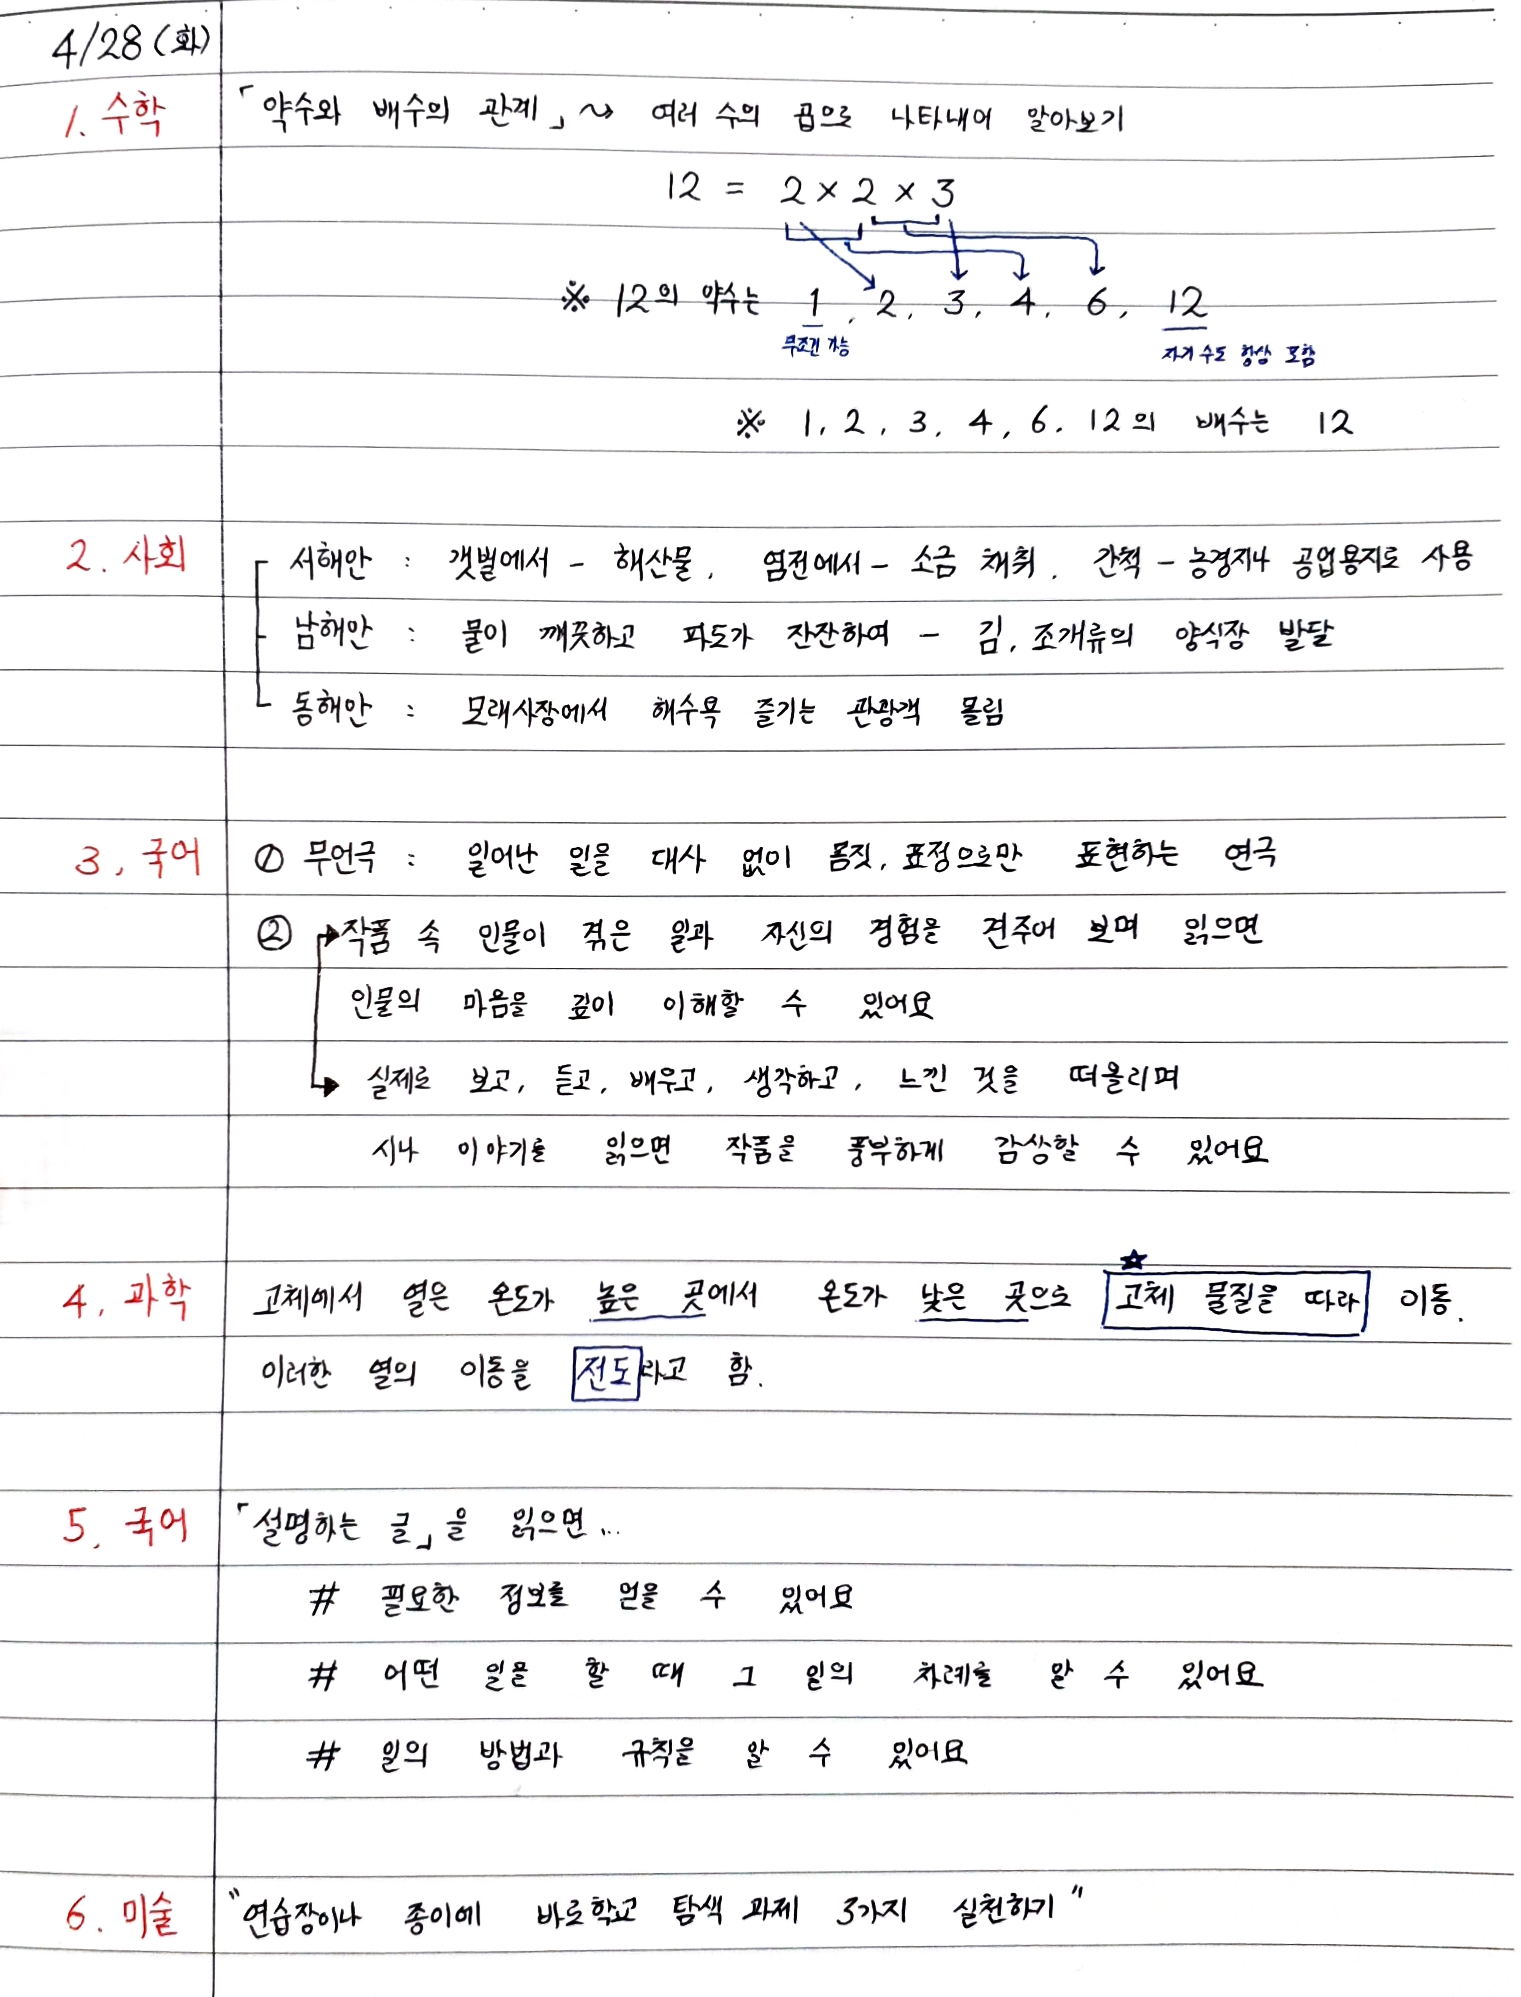 4/28 (화)
1. 수학 「약수와 배수의 관계」 ~> 여러 수의 곱으로 나타내어 알아보기
12 = 2 × 2 × 3
※ 12의 약수는 1, 2, 3, 4, 6, 12
무조건 가능 자기 수도 항상 포함
※ 1, 2, 3, 4, 6, 12의 배수는 12
2. 사회 서해안 : 갯벌에서 - 해산물, 염전에서 - 소금 채취, 간척 - 농경지나 공업용지로 사용
남해안 : 물이 깨끗하고 파도가 잔잔하여 - 김, 조개류의 양식장 발달
동해안 : 모래사장에서 해수욕 즐기는 관광객 몰림
3. 국어 ① 무언극 : 일어난 일을 대사 없이 몸짓, 표정으로만 표현하는 연극
② 작품 속 인물이 겪은 일과 자신의 경험을 견주어 보며 읽으면
인물의 마음을 깊이 이해할 수 있어요
실제로 보고, 듣고, 배우고, 생각하고, 느낀 것을 떠올리며
시나 이야기를 읽으면 작품을 풍부하게 감상할 수 있어요
☆
4. 과학 고체에서 열은 온도가 높은 곳에서 온도가 낮은 곳으로 고체 물질을 따라 이동.
이러한 열의 이동을 전도라고 함.
5. 국어 「설명하는 글」을 읽으면...
# 필요한 정보를 얻을 수 있어요
# 어떤 일을 할 때 그 일의 차례를 알 수 있어요
# 일의 방법과 규칙을 알 수 있어요
6. 미술 "연습장이나 종이에 바로학교 탐색 과제 3가지 실천하기"